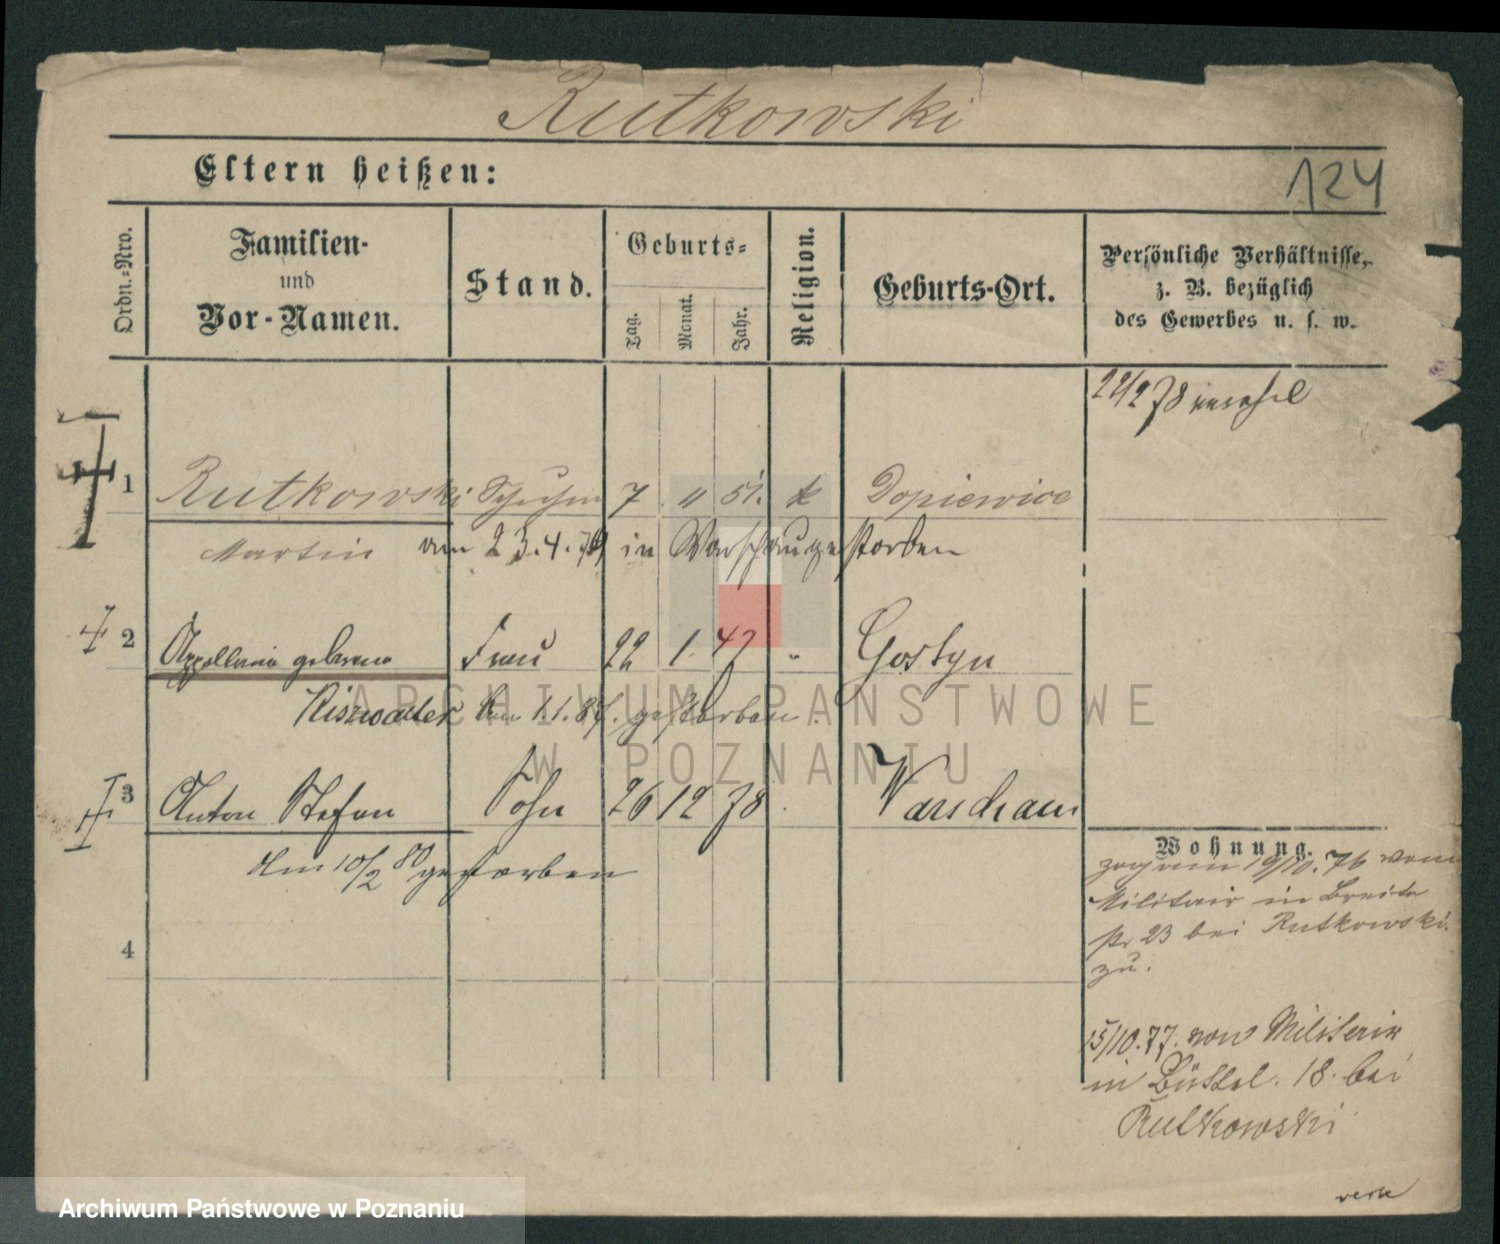 Rutkowski
Eltern heißen:
124
Ordn.-Nro.
Familien-
und
Vor-Namen.
Stand.
Geburts-
Tag.
Monat.
Jahr.
Religion.
Geburts-Ort.
Persönliche Verhältnisse,
z. B. bezüglich
des Gewerbes u. s. w.
22/2 78
1 Rutkowski 7 " 51. k Dopiewice
Martin am 23.4.79 in Warschau gestorben
2 Appollonia geborene Frau 22 1. 47 " Gostyn
am 1.1.87. gestorben.
3 Anton Stefan Sohn 26 12 78 Warschau
am 10/2 80 gestorben
4
Wohnung.
zog am 19/10. 76 vom
Militair in Breite
str 23 bei Rutkowski.
zu.
15/10.77. vom Militair
in Büttel. 18. bei
Rutkowski
ARCHIWUM PAŃSTWOWE
W POZNANIU
Archiwum Państwowe w Poznaniu